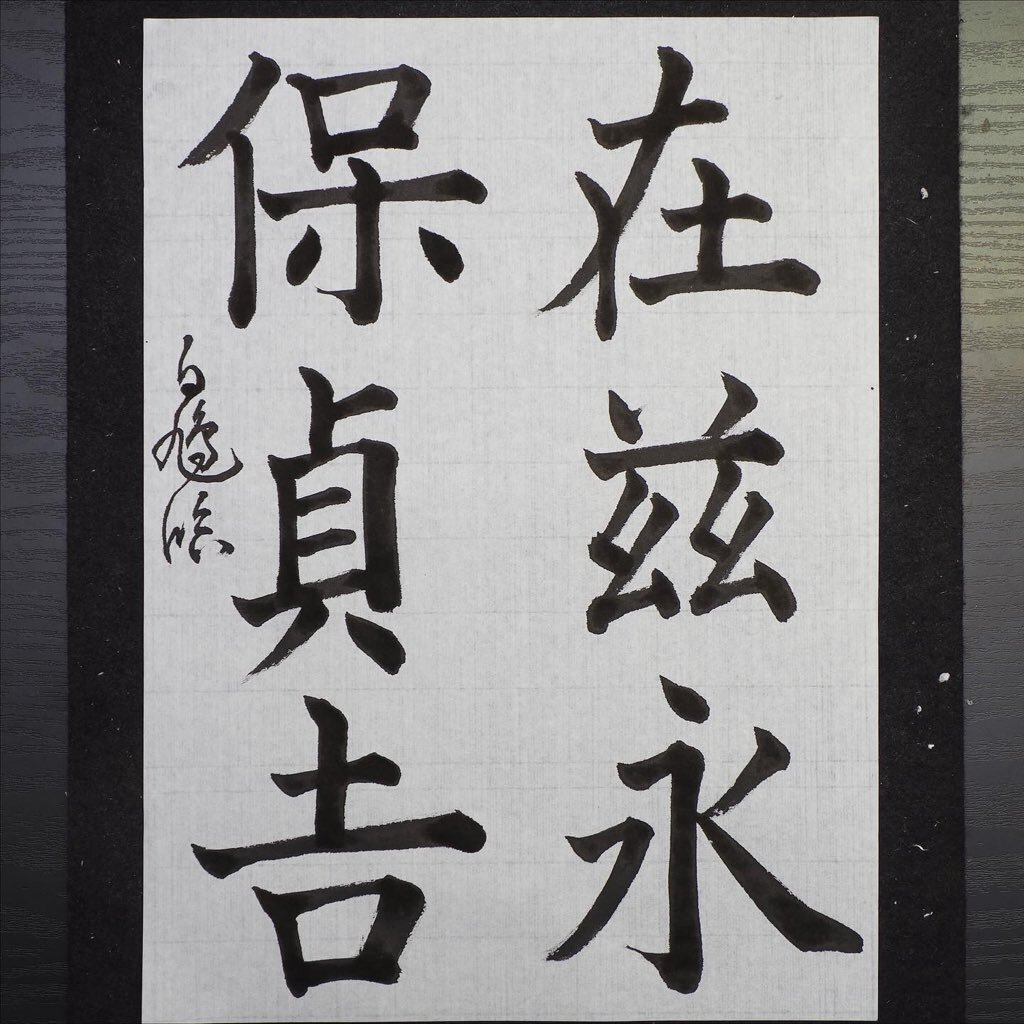 在茲永
保貞吉
白鳩臨